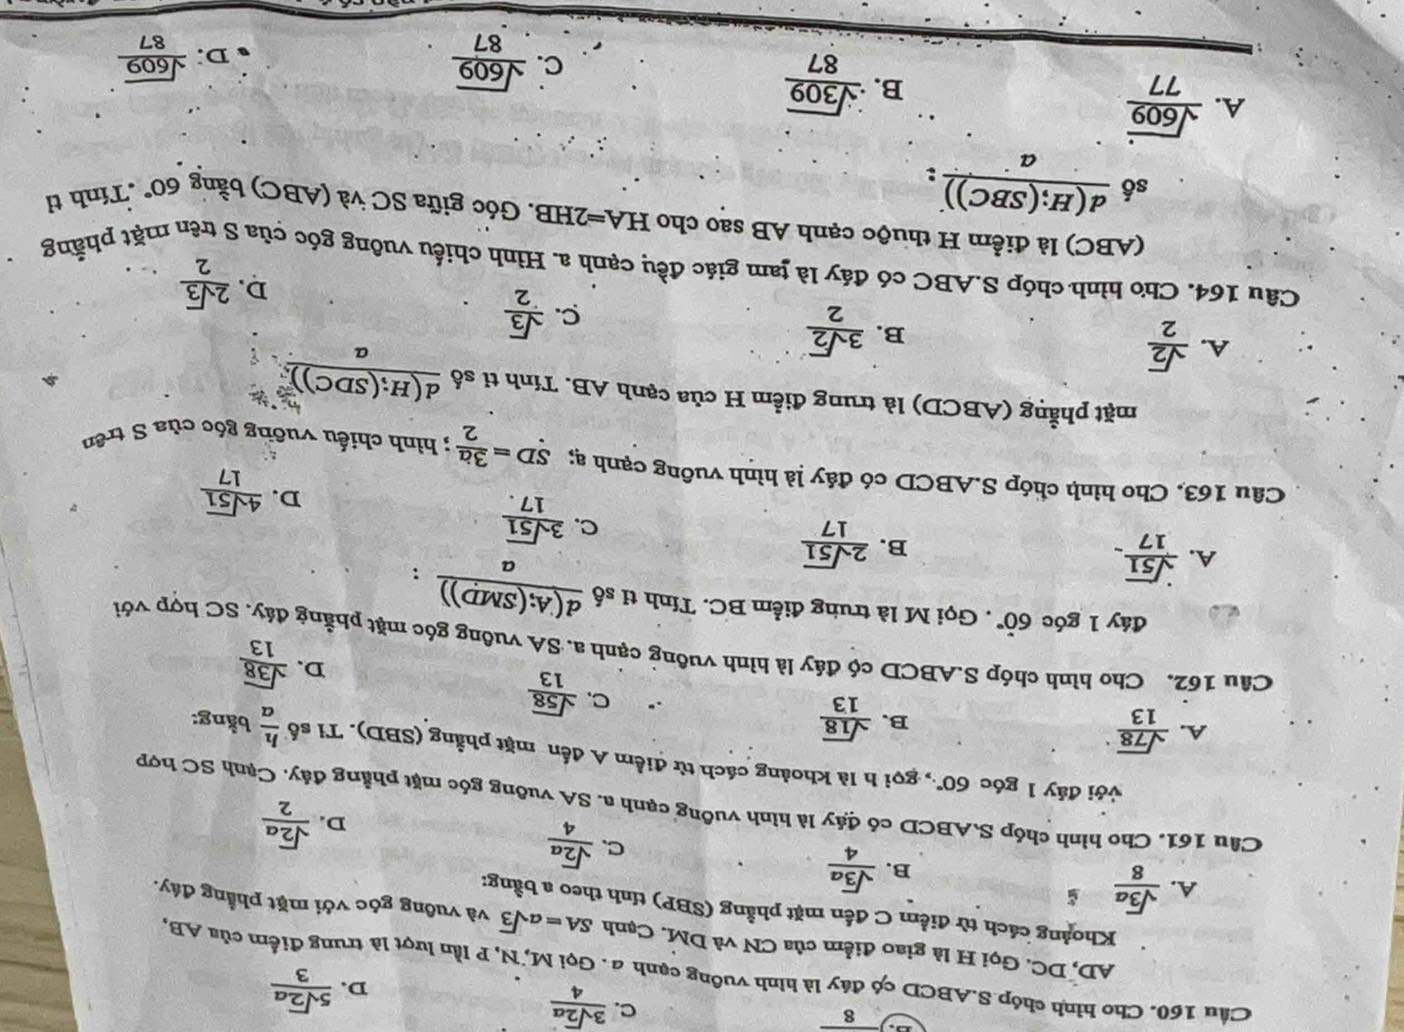 B. 8
C. 3√2a/4
D. 5√2a/3
Câu 160. Cho hình chóp S.ABCD có đáy là hình vuông cạnh a. Gọi M, N, P lần lượt là trung điểm của AB,
AD, DC. Gọi H là giao điểm của CN và DM. Cạnh SA = a√3 và vuông góc với mặt phẳng đáy.
Khoảng cách từ điểm C đến mặt phẳng (SBP) tính theo a bằng:
A. √3a/8
B. √3a/4
C. √2a/4
D. √2a/2
Câu 161. Cho hình chóp S.ABCD có đáy là hình vuông cạnh a. SA vuông góc mặt phẳng đáy. Cạnh SC hợp
với đáy 1 góc 60°, gọi h là khoảng cách từ điểm A đến mặt phẳng (SBD). Tỉ số h/a bằng:
A. √78/13
B. √18/13
C. √58/13
D. √38/13
Câu 162. Cho hình chóp S.ABCD có đáy là hình vuông cạnh a. SA vuông góc mặt phẳng đáy. SC hợp với
đáy 1 góc 60°. Gọi M là trung điểm BC. Tính tỉ số d(A;(SMD))/a :
A. √51/17
B. 2√51/17
C. 3√51/17
D. 4√51/17
Câu 163. Cho hình chóp S.ABCD có đáy là hình vuông cạnh a; SD = 3a/2; hình chiếu vuông góc của S trên
mặt phẳng (ABCD) là trung điểm H của cạnh AB. Tính tỉ số d(H;(SDC))/a
A. √2/2
B. 3√2/2
C. √3/2
D. 2√3/2
Câu 164. Cho hình chóp S.ABC có đáy là tam giác đều cạnh a. Hình chiếu vuông góc của S trên mặt phẳng
(ABC) là điểm H thuộc cạnh AB sao cho HA=2HB. Góc giữa SC và (ABC) bằng 60°. Tính tỉ
số d(H;(SBC))/a :
A. √609/77
B. √309/87
C. √609/87
D. √609/87